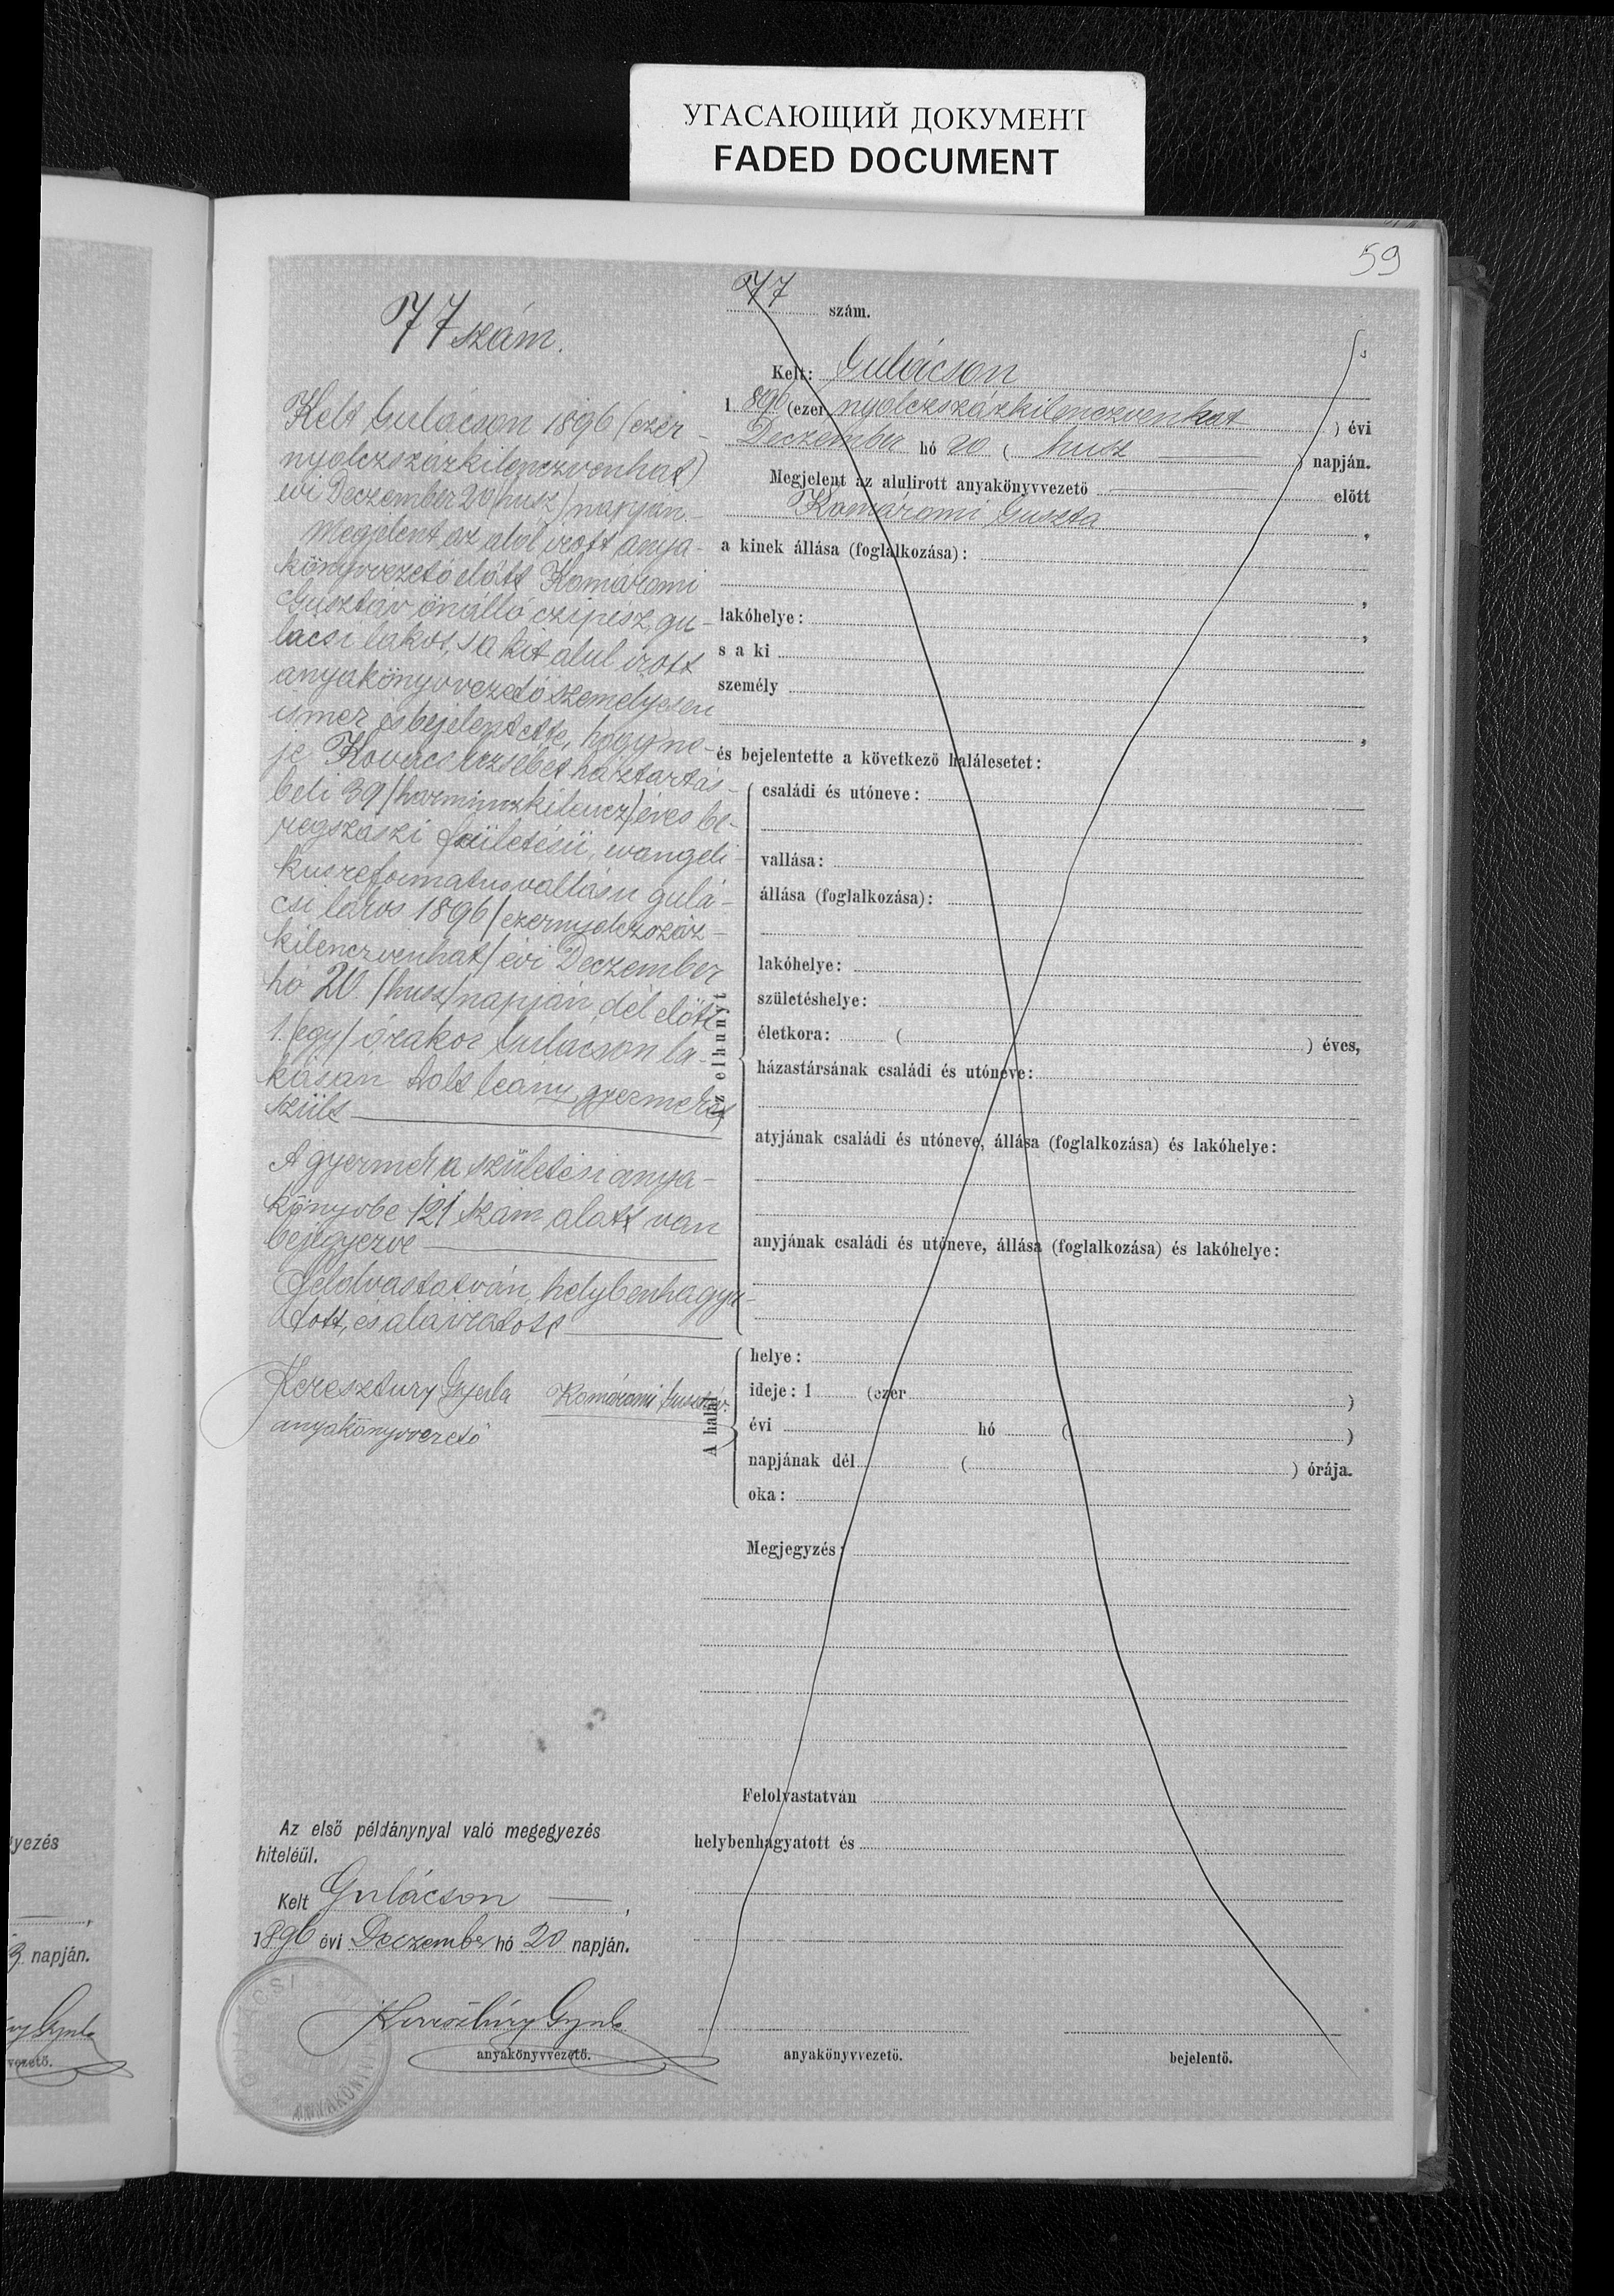 УГАСАЮЩИЙ ДОКУМЕНТ
FADED DOCUMENT
59
77 szám.
Kelt Gulácson 1896 (ezer-
nyolczszázkilenczvenhat)
évi Deczember 20 /husz/ napján.-
Megjelent az alól irott anya-
könyvvezető előtt Komáromi
Gusztáv önálló czipész, gu-
lácsi lakos, s a kit alul irott
anyakönyvvezető személyesen
ismer és bejelentette, hogy ne-
je Kovács Erzsébet háztartás-
beli 39 /harminczkilencz/ éves be-
regszászi születésü, evangeli-
kus reformatus vallásu gulá-
csi lakos 1896 /ezernyolczszáz-
kilenczvenhat/ évi Deczember
hó 20. /husz/ napján dél előtt
1. /egy/ órakor Gulácson la-
kásán halt leány gyermeket
szült
A gyermek a születési anya-
könyvbe 121 szám alatt van
bejegyezve
Felolvastatván, helybenhagya-
tott, és aláiratott
Keresztury Gyula Komáromi Gusztáv.
anyakönyvvezető
77 szám.
Kelt: Gulácson
1 896 (ezer nyolczszázkilenczvenhat ) évi
Deczember hó 20 ( husz ) napján.
Megjelent az alulirott anyakönyvvezető előtt
Komáromi Guszta ,
a kinek állása (foglalkozása):
,
lakóhelye: ,
s a ki
személy
,
és bejelentette a következő halálesetet:
Az elhunyt
családi és utóneve:
vallása:
állása (foglalkozása):
lakóhelye:
születéshelye:
életkora: ( ) éves,
házastársának családi és utóneve:
atyjának családi és utóneve, állása (foglalkozása) és lakóhelye:
anyjának családi és utóneve, állása (foglalkozása) és lakóhelye:
A halál
helye:
ideje: 1 (ezer )
évi hó ( )
napjának dél ( ) órája.
oka:
Megjegyzés:
Felolvastatván
helybenhagyatott és
anyakönyvvezető.
bejelentő.
Az első példánynyal való megegyezés
hiteléül.
Kelt Gulácson ,
1896 évi Deczember hó 20 napján.
Keresztúry Gyula
anyakönyvvezető.
yezés
,
3 napján.
vezető.